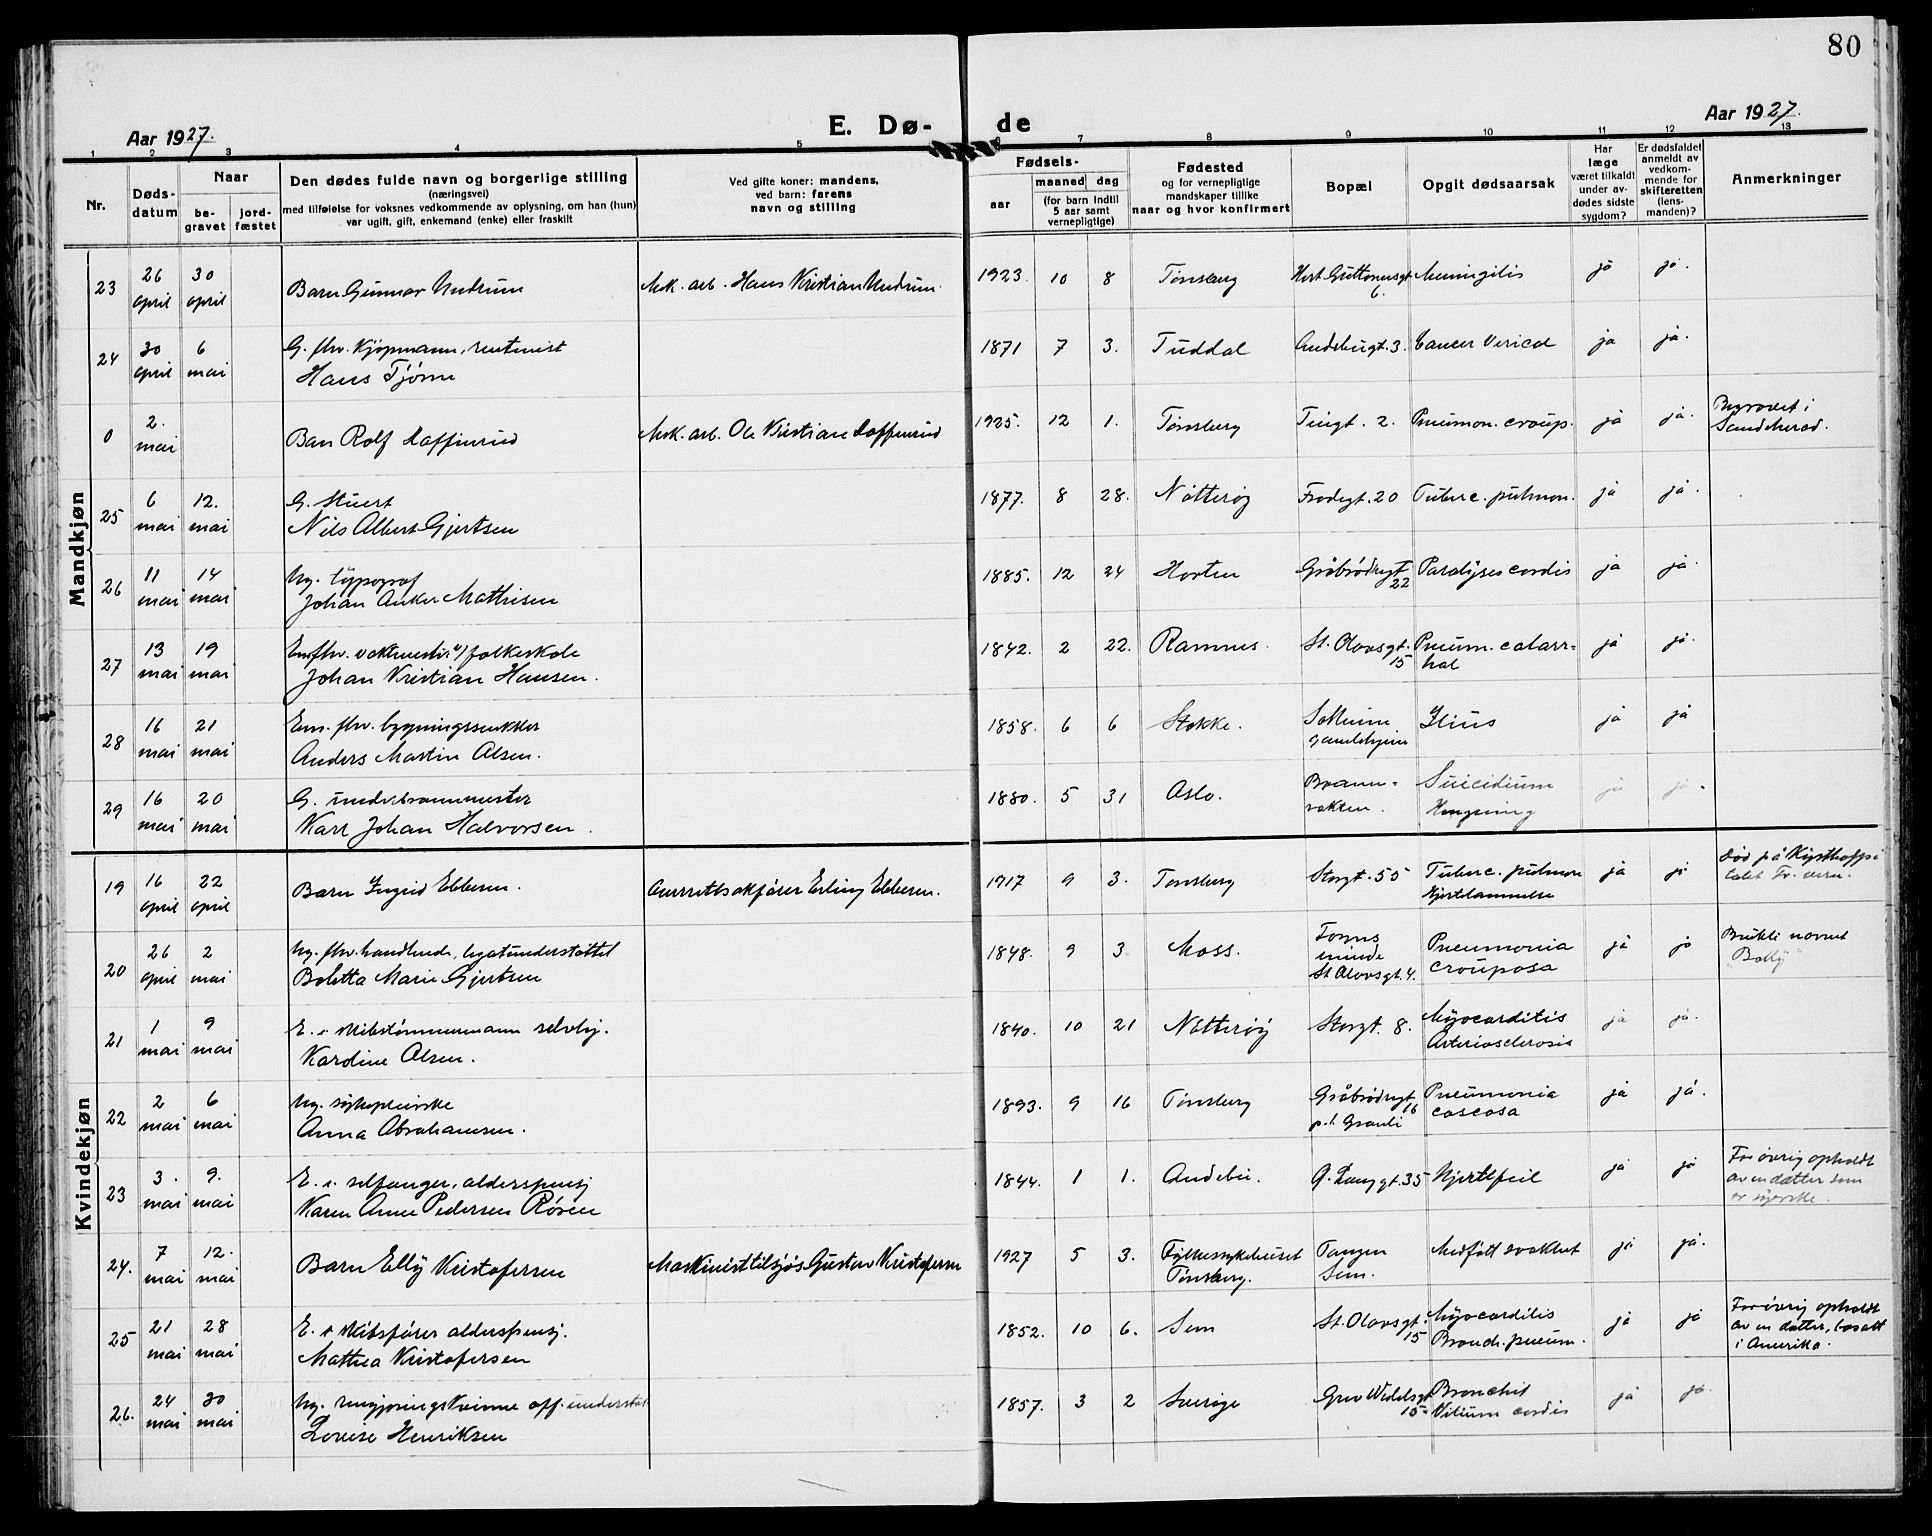 80
Aar 1927.
E. Dø- de
Aar 1927.
1 2 3 4 5 6 7 8 9 10 11 12 13
Nr.
Døds-
datum
Naar
be-
gravet
jord-
fæstet
Den dødes fulde navn og borgerlige stilling
(næringsvei)
med tilføielse for voksnes vedkommende av oplysning, om han (hun)
var ugift, gift, enkemand (enke) eller fraskilt
Ved gifte koner: mandens,
ved barn: farens
navn og stilling
Fødsels-
aar
maaned dag
(for barn indtil
5 aar samt
vernepligtige)
Fødested
og for vernepligtige
mandskaper tillike
naar og hvor konfirmert
Bopæl
Opgit dødsaarsak
Har
læge
været tilkaldt
under av-
dødes sidste
sygdom?
Er dødsfaldet
anmeldt av
vedkom-
mende for
skifteretten
(lens-
manden)?
Anmerkninger
Mandkjøn
23 26 april 30 april Barn Gunnar Undrum Mek. arb. Hans Kristian Undrum. 1923. 10 8 Tønsberg 6. Meningitis ja ja.
24 30 april 6 mai G. fhv. kjøpmann, rentenist
Hans Tjønn 1871 7 3. Tuddal Andebugt. 3. Cancer ja ja.
0 2. mai Barn Rolf Mek. arb. Ole Kristian 1925. 12 1. Tønsberg Tingt. 2. Pneumon. croup. ja ja. Begravet i
Sandeherad.
25 6 mai 12. mai G. Stuert
Nils Albert Gjertsen 1877. 8 28. Nøtterøy Frodegt. 20 Tuberc. pulmon. ja ja.
26 11 mai 14 mai Ug. typograf
Johan Anker Mathisen 1885. 12 24 Horten Gråbrødregt 22 Paralyses cordis ja ja.
27 13 mai 19 mai Em. fhv. vaktmester v/ folkeskole
Johan Kristian Hansen. 1842. 2 22. Ramnes. St. Olavsgt. 15 Pneum. catarr=
hal ja ja.
28 16 mai 21 mai Em. fhv. bygningssnekker
Anders Martin Olsen. 1858. 6 6 Stokke. Solheim
gamlehjem Ilius ja ja
29 16 mai 20 mai G. underbrannmester
Karl Johan Halvorsen. 1880. 5 31 Oslo. Brann-
vakten. Suicidium
Hengning ja ja.
Kvindekjøn
19 16 april 22 april Barn Ingrid Ebbesen. Overrettssakfører Erling Ebbesen. 1917 9 3. Tønsberg Storgt. 55 Tuberc. pulmon
Hjertelammelse ja ja Død på Kysthospi
talet
20 26 april 2 mai Ug. fhv. handlende, legatunderstøttet
Boletta Marie Gjertsen 1848. 9 3 Moss. Fosns
minde
St. Olavsgt. 4. Pneumonia
crouposa ja ja navnet
"Bolly"
21 1 mai 9 mai E. e. skibstømmermann selvhj.
Kardine Olsen. 1840. 10 21 Nøtterøy Storgt. 8. Myocarditis
Arteriosclerosis ja ja.
22 2 mai 6 mai Ug. sykepleierske
Anna Abrahamsen. 1893. 9 16 Tønsberg Gråbrødregt 16
p.t. Granli Pneumonia
caseosa ja ja.
23 3. mai 9. mai E. e. selfanger, alderspensj
Karen Anne Pedersen Røsen 1844. 1 1. Andebu. G. Langgt. 35 Hjertefeil ja ja Forøvrig opholdt
av en datter som
er syerske.
24. 7 mai 12. mai Barn Elly Kristofersen Maskinist tilsjøs Gustav Kristofersen 1927 5 3. Fylkessykehuset
Tønsberg. Tangen
Sem. Medfødt svakhet ja ja.
25 21 mai 28 mai E. e skibsfører alderspensj.
Mathea Kristofersen 1852. 10 6. Sem St. Olavsgt. 15 Myocarditis
Bronch. pneum. ja ja Forøvrig opholdt
av en datter, bosatt
i Amerika.
26. 24 mai 30 mai Ug. rengjøringskvinne off. understøt
Lovise Henriksen 1857. 3 2 Sverige Grev Wedelsgt. 15 Bronchit
Vitium cordis ja ja.